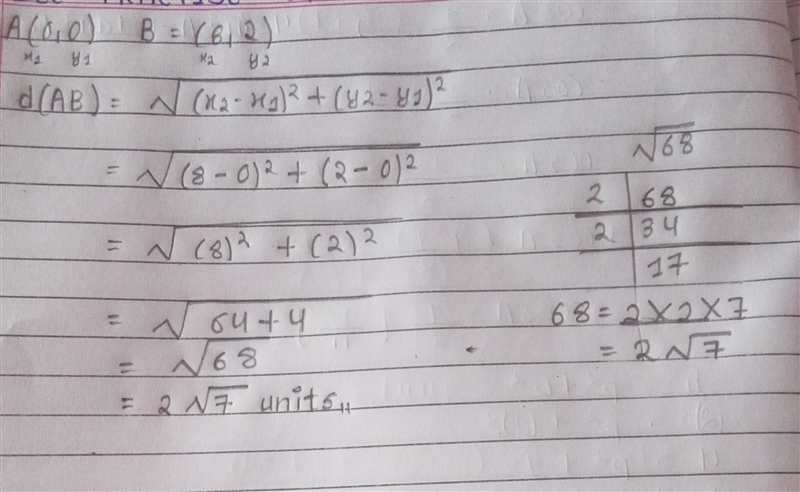 A(0,0) B = (8, 2)
x1 y1 x2 y2
d(AB) = √(x2-x1)² + (y2-y1)²
= √(8-0)² + (2-0)²
= √(8)² + (2)²
= √64+4
= √68
= 2√7 units
√68
2 | 68
2 | 34
17
68 = 2×2×7
= 2√7